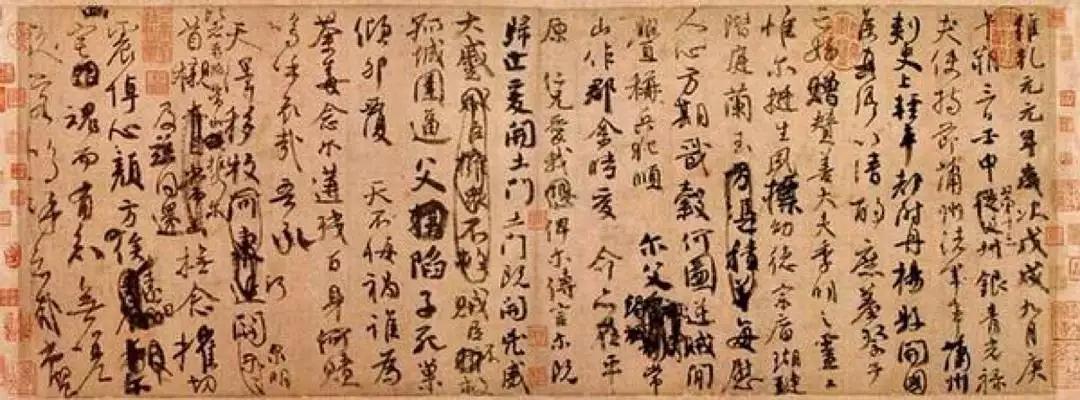 維乾元元年歲次戊戌九月庚
午朔三日壬申第十三叔從父州銀青光祿
夫使持節蒲州諸軍事蒲州
刺史上輕車都尉丹楊縣開國
侯真卿以清酌庶羞祭于
亡姪贈贊善大夫季明之靈曰
惟爾挺生夙標幼德宗廟瑚璉
階庭蘭玉方憑積善每慰
人心方期戩穀何圖逆賊閒
釁稱兵犯順爾父竭誠常
山作郡余時受命亦在平
原仁兄愛我俾爾傳言爾既
歸止爰開土門土門既開兇威
大蹙賊臣不救
孤城圍逼父陷子死巢
傾卵覆天不悔禍誰為
荼毒念爾遘殘百身何贖
嗚呼哀哉吾承
天澤移牧河東近河關泉明
比者再陷常山攜爾
首櫬及茲同還撫念摧切
震悼心顏方俟遠日卜爾
宅魂而有知無嗟
久客嗚呼哀哉尚饗